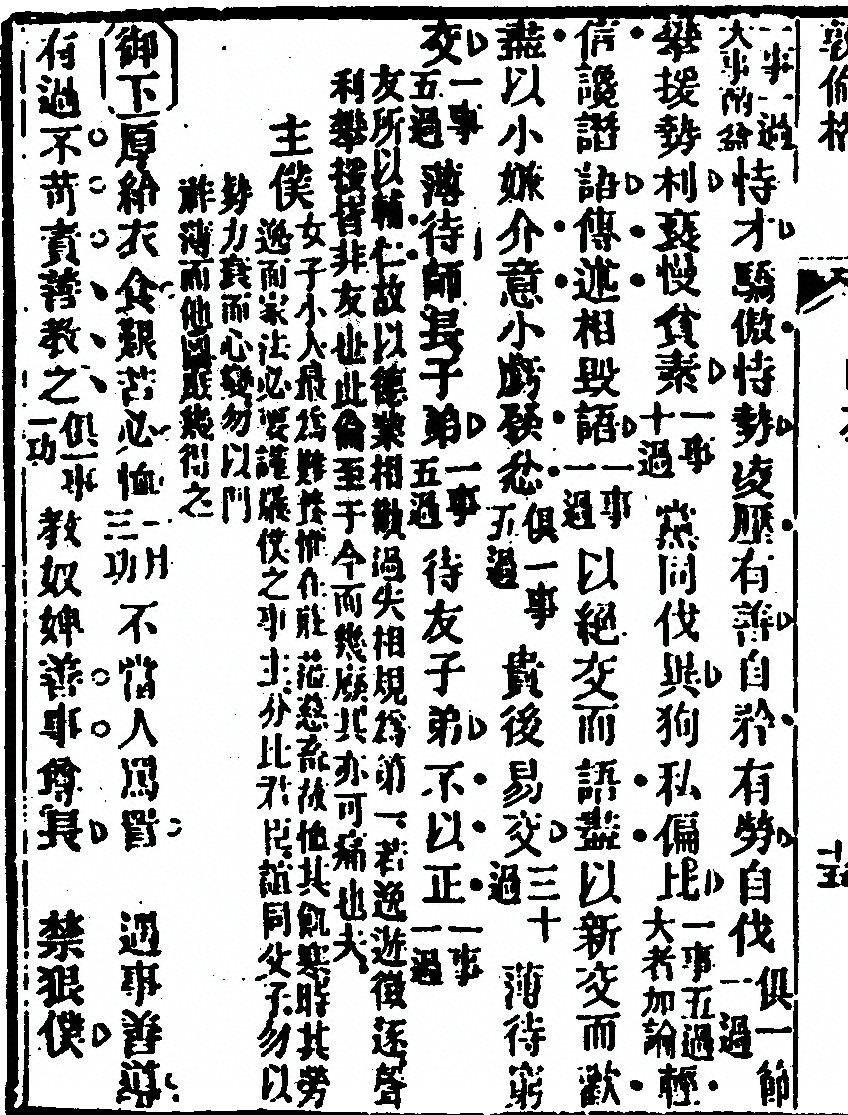 敦倫格
一事一過大事酌論 恃才驕傲恃勢凌壓有善自矜有勞自伐俱一節一過
攀援勢利褻慢貧素一事十過 黨同伐異狥私偏比一事五過大者加論 輕
信讒譖語傳述相毀語一事一過 以絕交而語盡以新交而歡
盡以小嫌介意小虧發愁俱一事五過 貴後易交三十過 薄待窮
交一事五過 薄待師長子弟一事五過 待友子弟不以正一事一過
友所以輔仁故以德業相勸過失相規為第一若逸遊徵逐聲
利攀援皆非友也此倫至于今而幾廢其亦可痛也夫
主僕
女子小人最為難養惟作莊蒞慈畜故他其飢寒時其勞
逸而家法必要謹嚴使之事主分比君臣誼同父子勿以
勢力衰而心變勿以門
祚薄而他圖庶幾得之
御下 厚給衣食艱苦必恤一月三功 不當人罵詈 遇事善
有過不苛責善教之俱一事一功 教奴婢善事尊長 禁狠僕